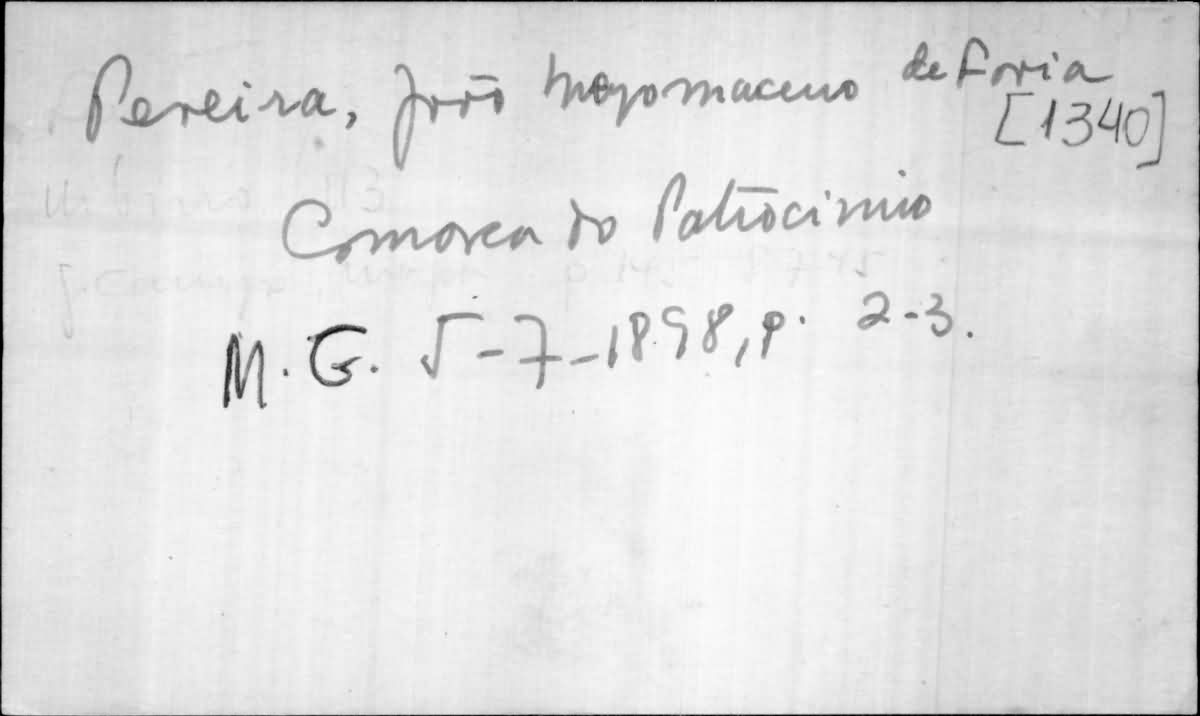 Pereira, João Nepomuceno de Faria
[1340]
Comarca do Patrocinio
M. G. 5-7-1898, p. 2-3.